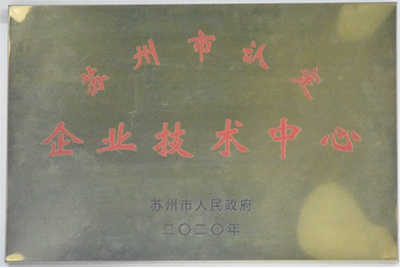 苏州市认定
企业技术中心
苏州市人民政府
二〇二〇年